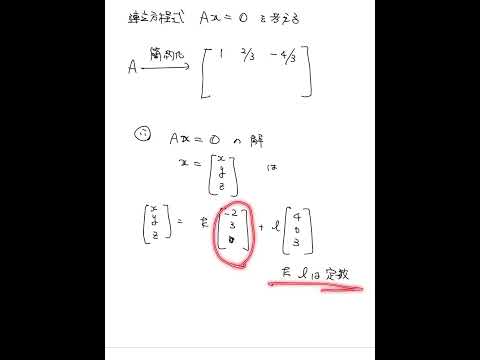 連立方程式 Ax = 0 を考える
A 簡約化 → [ 1 2/3 -4/3 ]
∴ Ax = 0 の解
x = [ x y z ] は
[ x y z ] = k [ -2 3 0 ] + l [ 4 0 3 ]
k l は 定数